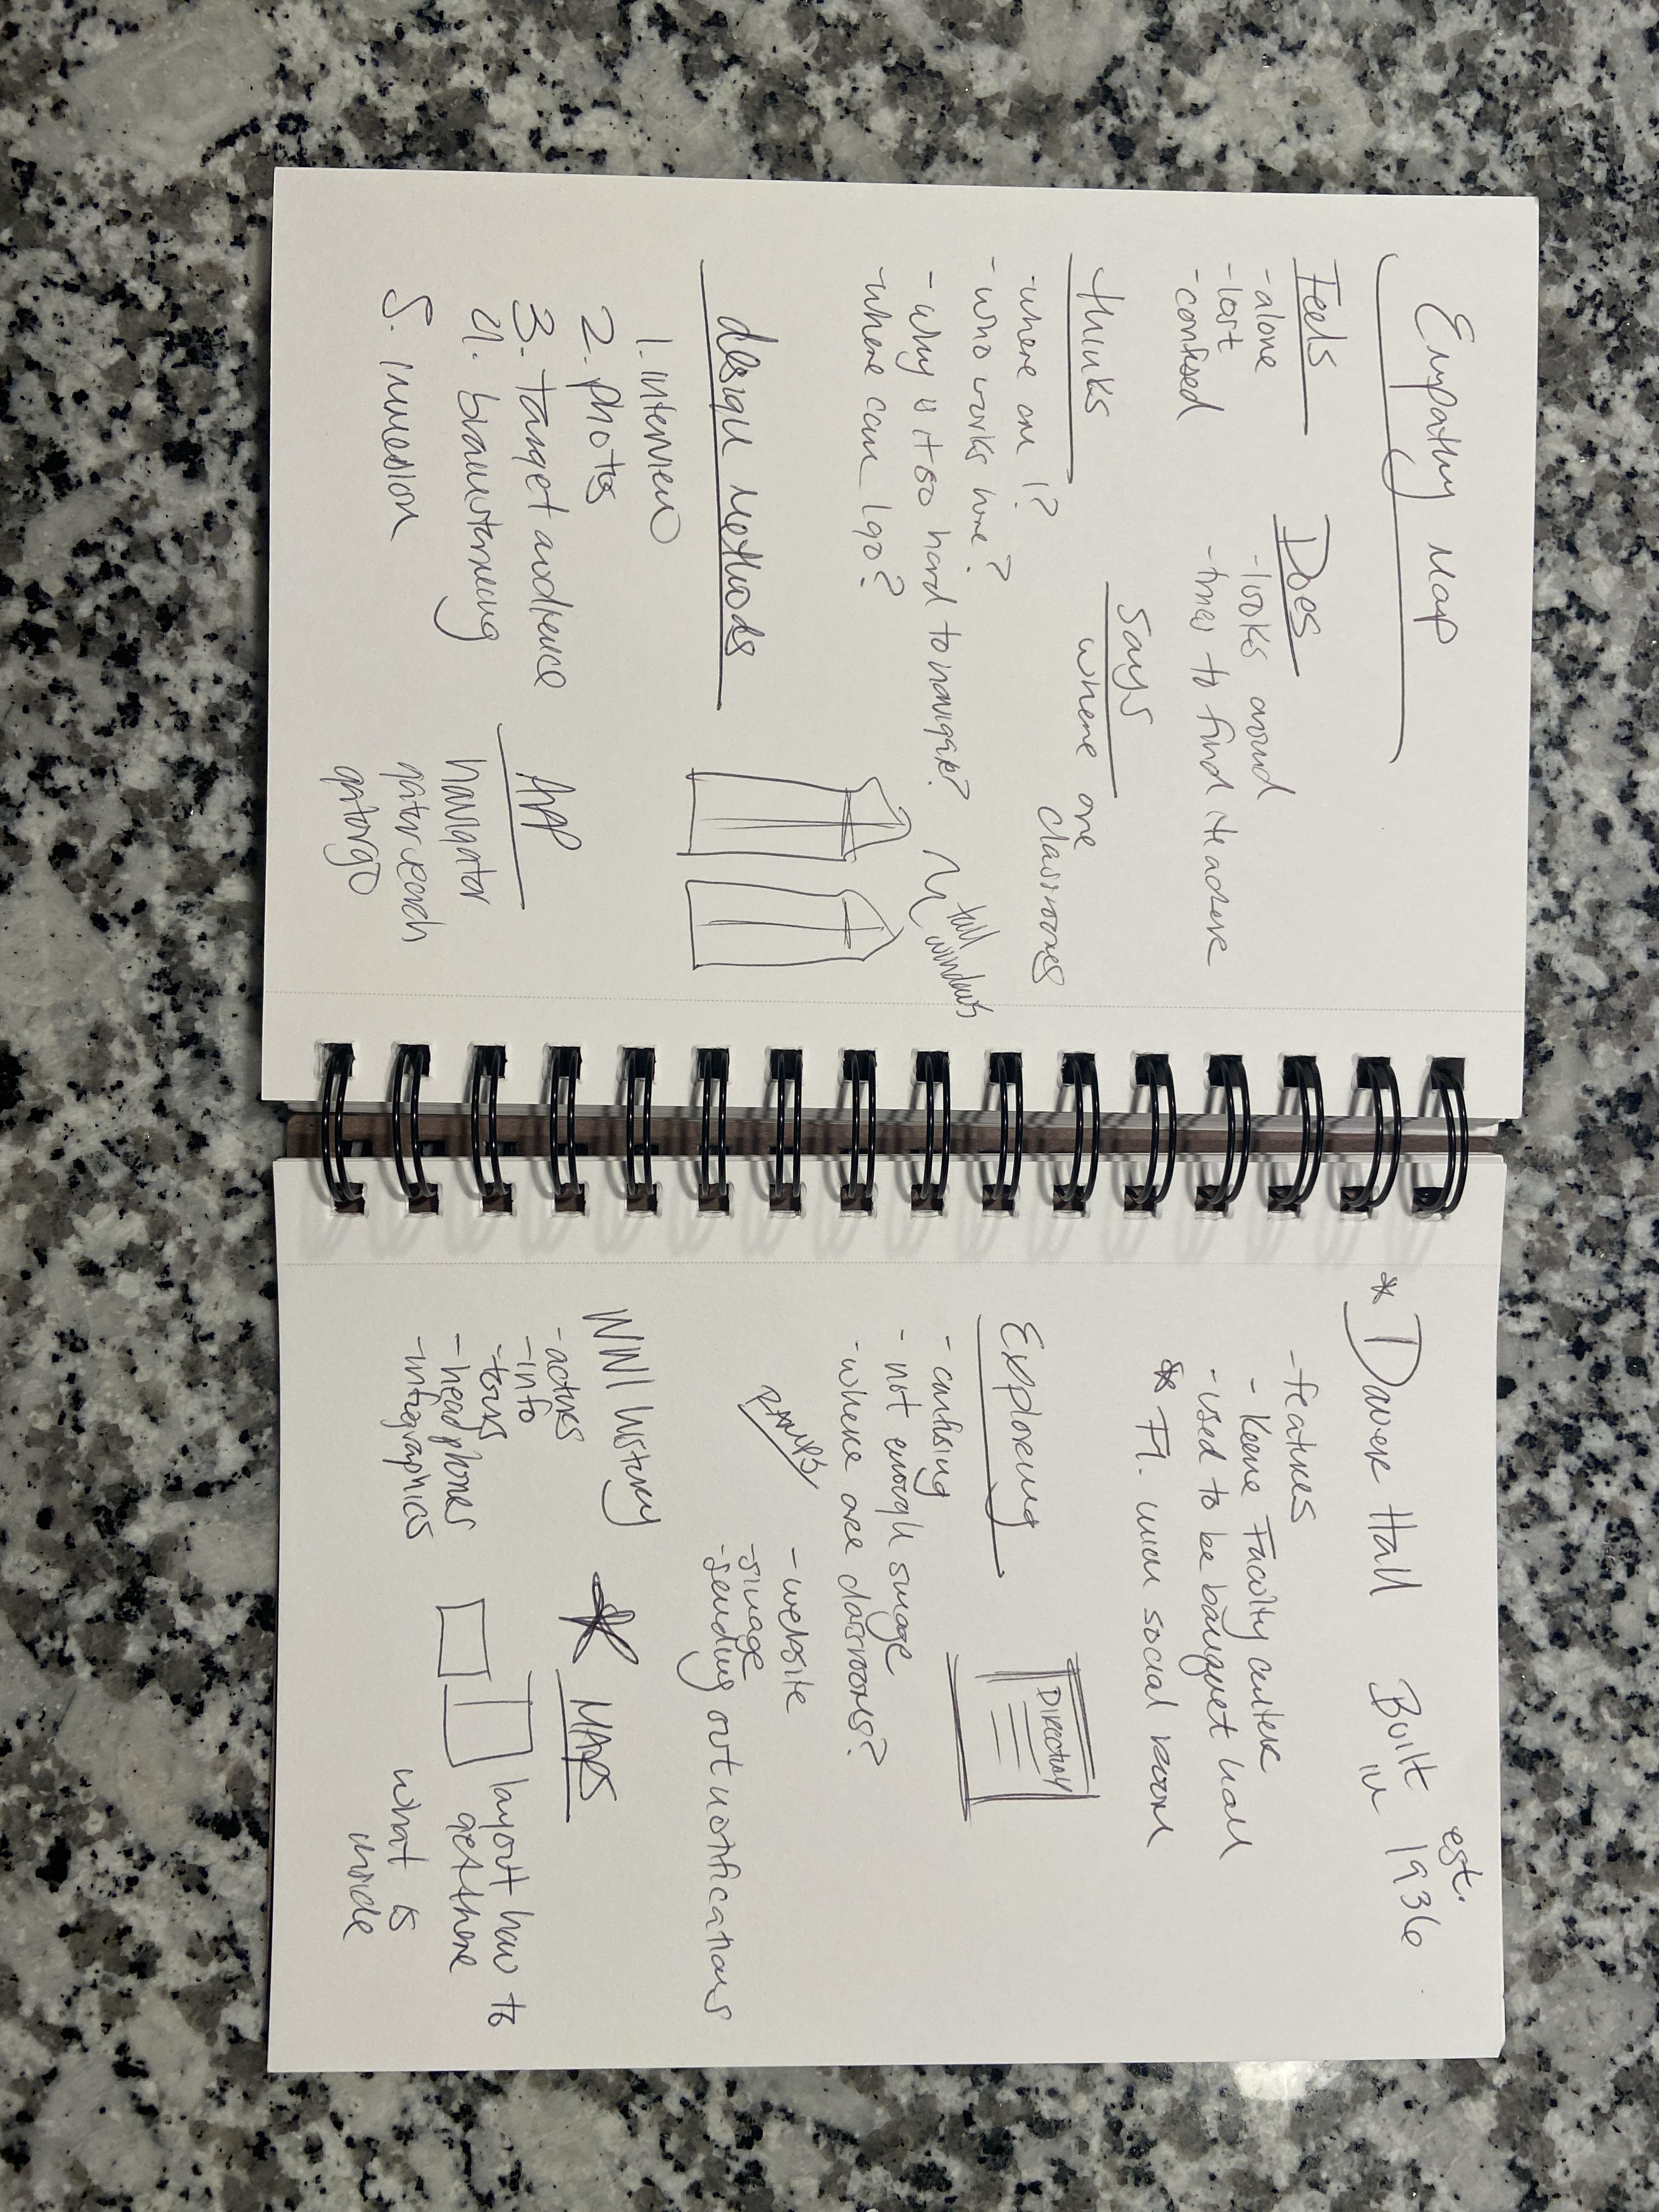 Empathy Map
Feels
- alone
- lost
- confused
Does
- looks around
- tries to find teacher
thinks
- where am I?
- who works here?
- why is it so hard to navigate?
- where can I go?
Says
where are
classrooms
tall
windows
design methods
1. interview
2. photos
3. target audience
4. brainstorming
5. immersion
App
navigator
gator search
gatorgo
* Dauer Hall Built in est. 1936
- features
- Keene Faculty center
- used to be banquet hall
* Fl. union social room
Exploring
- confusing
- not enough sinage
- where are classrooms?
DIRECTORY
- website
- sinage
- sending out notifications
WWI history
- actors
- info
- tours
- headphones
- infographics
MAPS
layout how to
get there
what is
inside